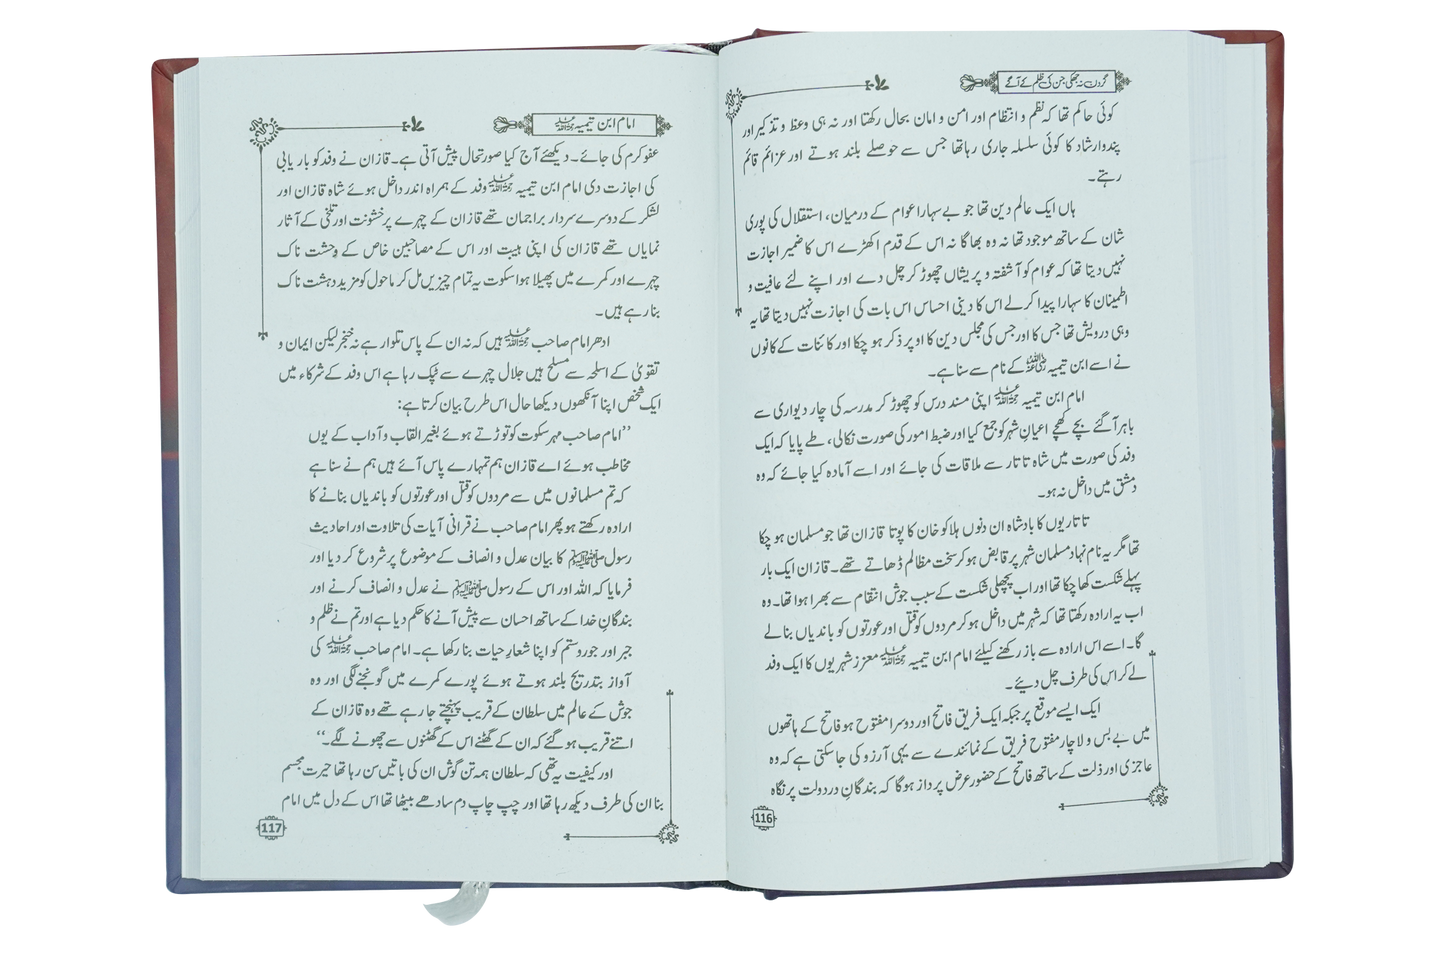 گردن نہ جھکی جن کی ظلم کے آگے
کوئی حاکم تھا کہ نظم و انتظام اور امن و امان بحال رکھتا اور نہ ہی وعظ و تذکیر اور
پند وارشاد کا کوئی سلسلہ جاری رہا تھا جس سے حوصلے بلند ہوتے اور عزائم قائم
رہتے۔
ہاں ایک عالم دین تھا جو بے سہارا عوام کے درمیان، استقلال کی پوری
شان کے ساتھ موجود تھا نہ وہ بھاگا نہ اس کے قدم اکھڑے اس کا ضمیر اجازت
نہیں دیتا تھا کہ عوام کو آشفتہ و پریشاں چھوڑ کر چل دے اور اپنے لئے عافیت و
اطمینان کا سہارا پیدا کرلے اس کا دینی احساس اس بات کی اجازت نہیں دیتا تھا یہ
وہی درویش تھا جس کا اور جس کی مجلس دین کا اوپر ذکر ہو چکا اور کائنات کے کانوں
نے اسے ابن تیمیہ رحمۃ اللہ علیہ کے نام سے سنا ہے۔
امام ابن تیمیہ رحمۃ اللہ علیہ اپنی مسند درس کو چھوڑ کر مدرسہ کی چار دیواری سے
باہر آگئے بچے کھچے اعیانِ شہر کو جمع کیا اور ضبط امور کی صورت نکالی، طے پایا کہ ایک
وفد کی صورت میں شاہ تاتار سے ملاقات کی جائے اور اسے آمادہ کیا جائے کہ وہ
دمشق میں داخل نہ ہو۔
تاتاریوں کا بادشاہ ان دنوں ہلاکو خان کا پوتا قازان تھا جو مسلمان ہو چکا
تھا مگر یہ نام نہاد مسلمان شہر پر قابض ہوکر سخت مظالم ڈھاتے تھے۔ قازان ایک بار
پہلے شکست کھا چکا تھا اور اب پچھلی شکست کے سبب جوش انتقام سے بھرا ہوا تھا۔ وہ
اب یہ ارادہ رکھتا تھا کہ شہر میں داخل ہوکر مردوں کو قتل اور عورتوں کو باندیاں بنالے
گا۔ اسے اس ارادہ سے باز رکھنے کیلئے امام ابن تیمیہ رحمۃ اللہ علیہ معزز شہریوں کا ایک وفد
لے کر اس کی طرف چل دیئے۔
ایک ایسے موقع پر جبکہ ایک فریق فاتح اور دوسرا مفتوح ہو فاتح کے ہاتھوں
میں بے بس و لاچار مفتوح فریق کے نمائندے سے یہی آرزو کی جاسکتی ہے کہ وہ
عاجزی اور ذلت کے ساتھ فاتح کے حضور عرض پرداز ہوگا کہ بندگانِ در دولت پر نگاہ
116
امام ابن تیمیہ رحمۃ اللہ علیہ
عفو کرم کی جائے۔ دیکھئے آج کیا صورتحال پیش آتی ہے۔ قازان نے وفد کو باریابی
کی اجازت دی امام ابن تیمیہ رحمۃ اللہ علیہ وفد کے ہمراہ اندر داخل ہوئے شاہ قازان اور
لشکر کے دوسرے سردار براجمان تھے قازان کے چہرے پر خشونت اور تلخی کے آثار
نمایاں تھے قازان کی اپنی ہیبت اور اس کے مصاحبین خاص کے وحشت ناک
چہرے اور کمرے میں پھیلا ہوا سکوت یہ تمام چیزیں مل کر ماحول کو مزید دہشت ناک
بنا رہے ہیں۔
ادھر امام صاحب رحمۃ اللہ علیہ ہیں کہ نہ ان کے پاس تلوار ہے نہ خنجر لیکن ایمان و
تقویٰ کے اسلحہ سے مسلح ہیں جلال چہرے سے ٹپک رہا ہے اس وفد کے شرکاء میں
ایک شخص اپنا آنکھوں دیکھا حال اس طرح بیان کرتا ہے:
”امام صاحب مہر سکوت کو توڑتے ہوئے بغیر القاب و آداب کے یوں
مخاطب ہوئے اے قازان ہم تمہارے پاس آئے ہیں ہم نے سنا ہے
کہ تم مسلمانوں میں سے مردوں کو قتل اور عورتوں کو باندیاں بنانے کا
ارادہ رکھتے ہو پھر امام صاحب نے قرانی آیات کی تلاوت اور احادیث
رسول ﷺ کا بیان عدل و انصاف کے موضوع پر شروع کر دیا اور
فرمایا کہ اللہ اور اس کے رسول ﷺ نے عدل و انصاف کرنے اور
بندگانِ خدا کے ساتھ احسان سے پیش آنے کا حکم دیا ہے اور تم نے ظلم و
جبر اور جور و ستم کو اپنا شعارِ حیات بنا رکھا ہے۔ امام صاحب رحمۃ اللہ علیہ کی
آواز بتدریج بلند ہوتے ہوئے پورے کمرے میں گونجنے لگی اور وہ
جوش کے عالم میں سلطان کے قریب پہنچتے جا رہے تھے وہ قازان کے
اتنے قریب ہوگئے کہ ان کے گھٹنے اس کے گھٹنوں سے چھونے لگے۔“
اور کیفیت یہ تھی کہ سلطان ہمہ تن گوش ان کی باتیں سن رہا تھا حیرت مجسم
بنا ان کی طرف دیکھ رہا تھا اور چپ چاپ دم سادھے بیٹھا تھا اس کے دل میں امام
117